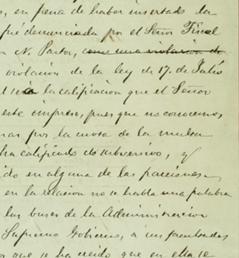 en pena de haber insertado la
fué denunciada por el Señor Fiscal
n N. Pastor, como una violacion de
violacion de la ley de 17. de Julio
la calificacion que el Señor
este impreso, pues que no conocemos
por la cuota de la multa
ha calificado de subersivo, y
en alguna de las
en la relacion no se habla una palabra
las bases de la Administracion
Supremo Gobierno, a sus facultades
que se ha creido que en ella se